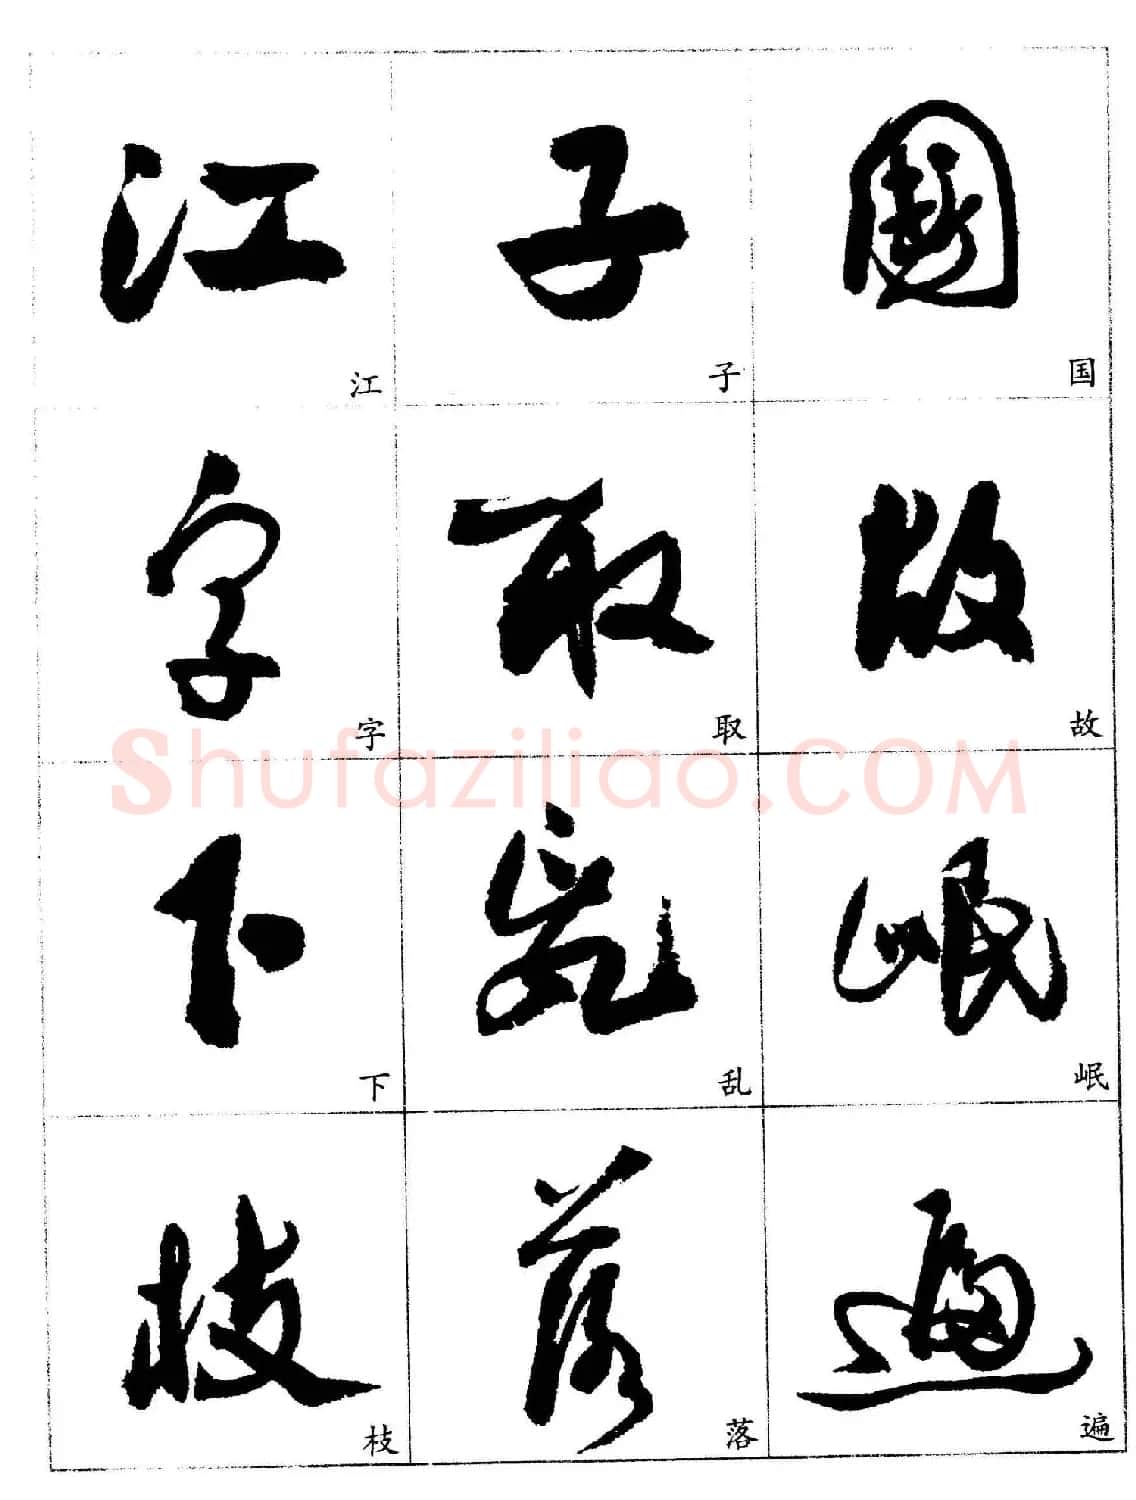 江 子 国
江 子 国
字 取 故
字 取 故
Shufaziliao.COM
下 乱 岷
下 乱 岷
枝 落 遍
枝 落 遍